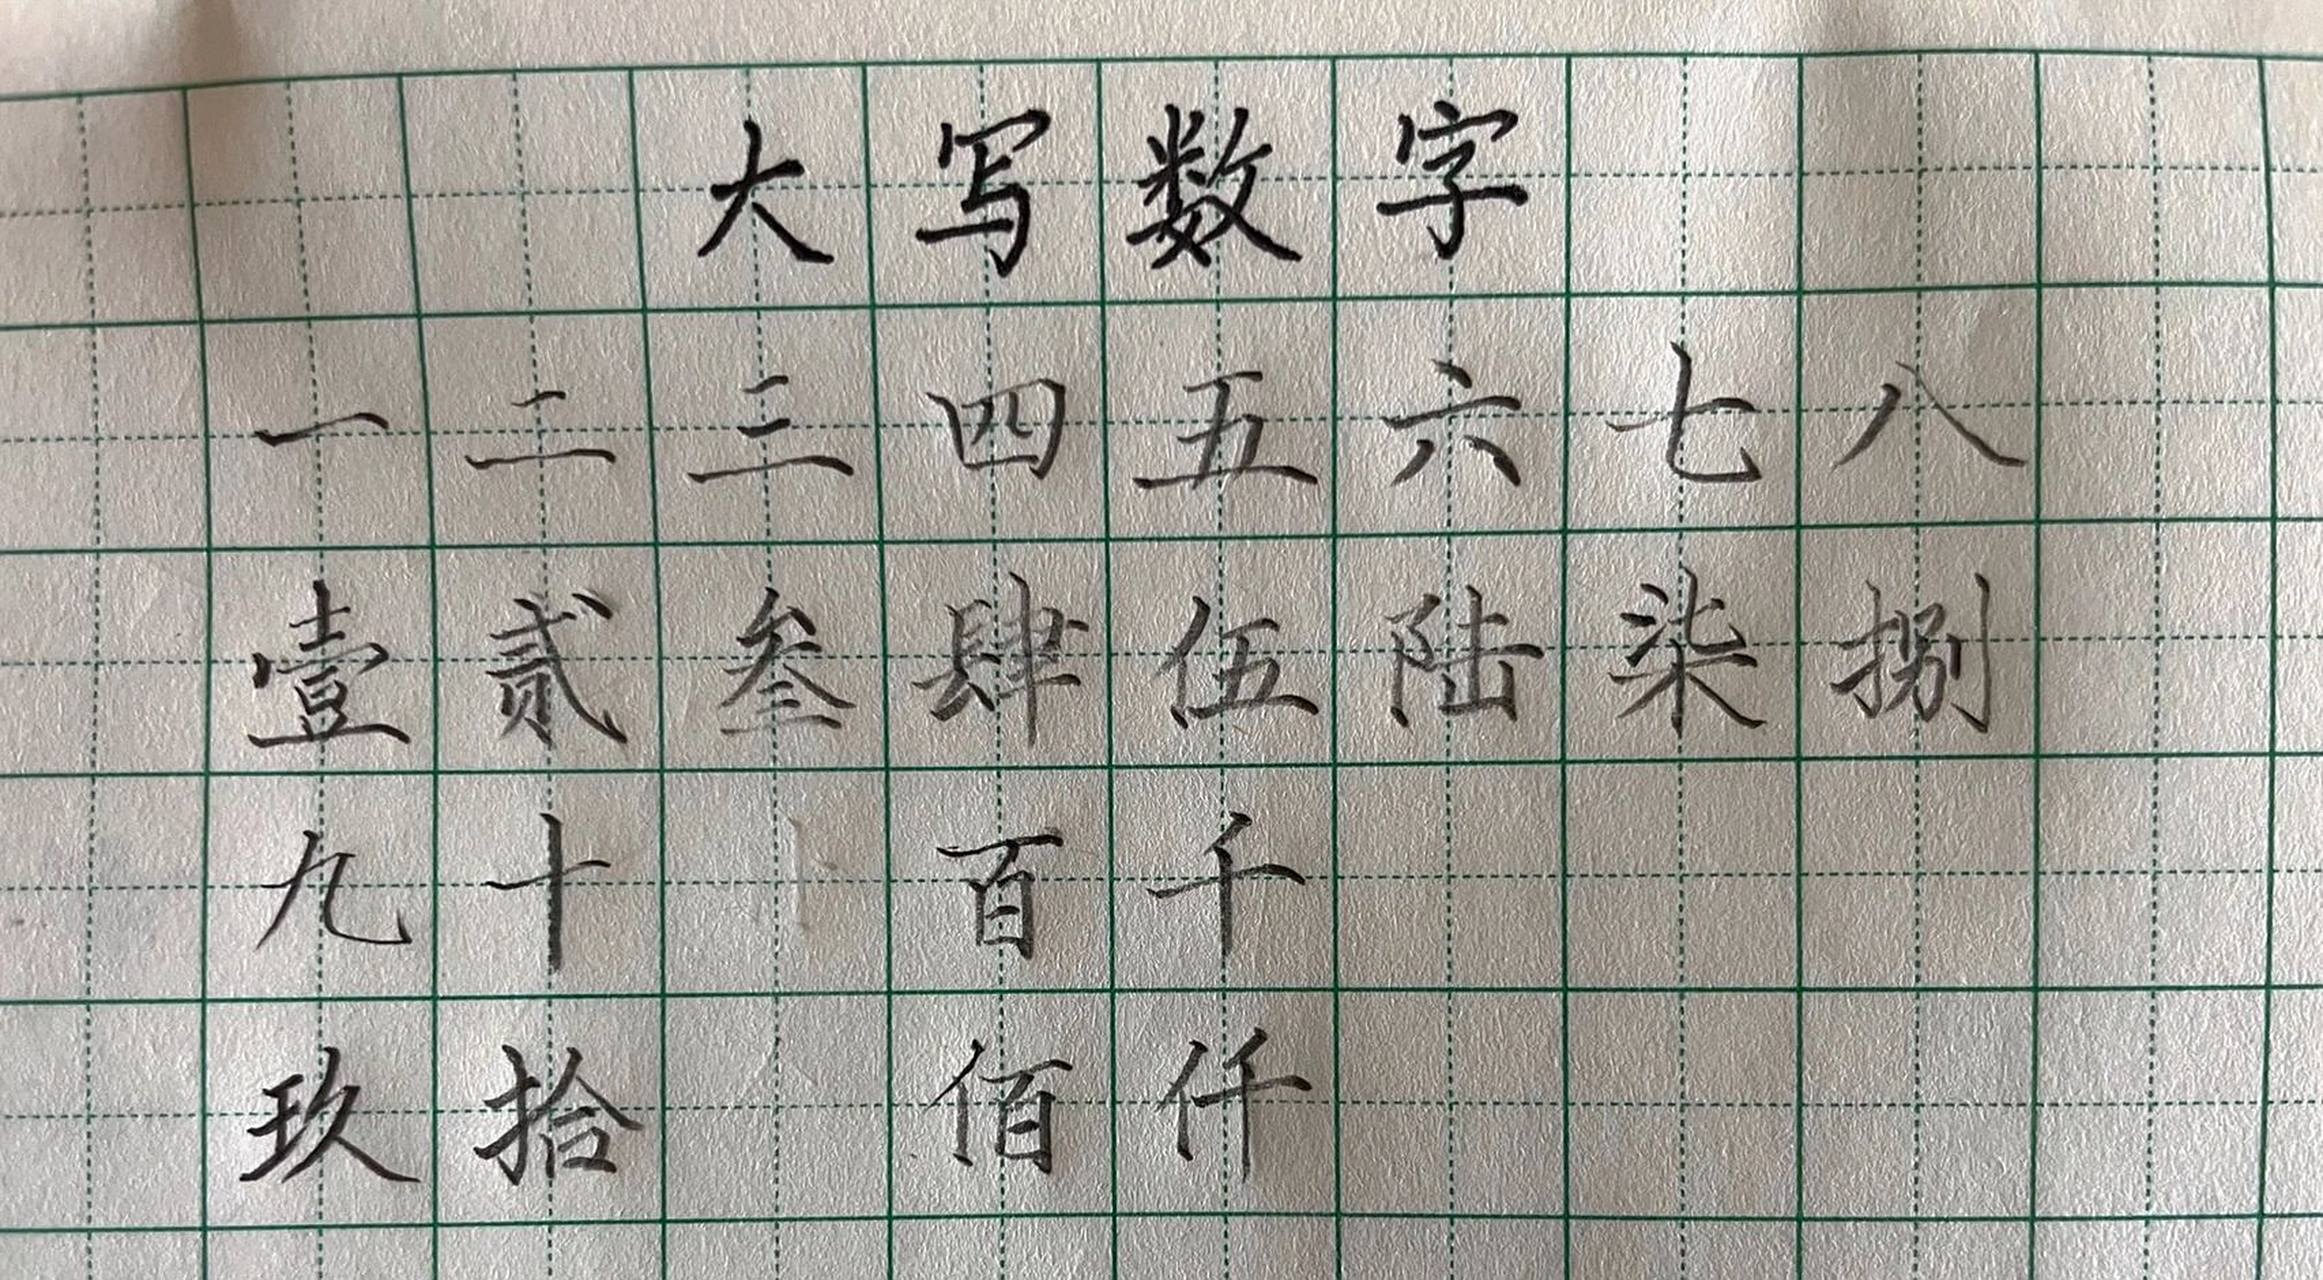 大写数字
一二三四五六七八
壹贰叁肆伍陆柒捌
九十 百千
玖拾 佰仟